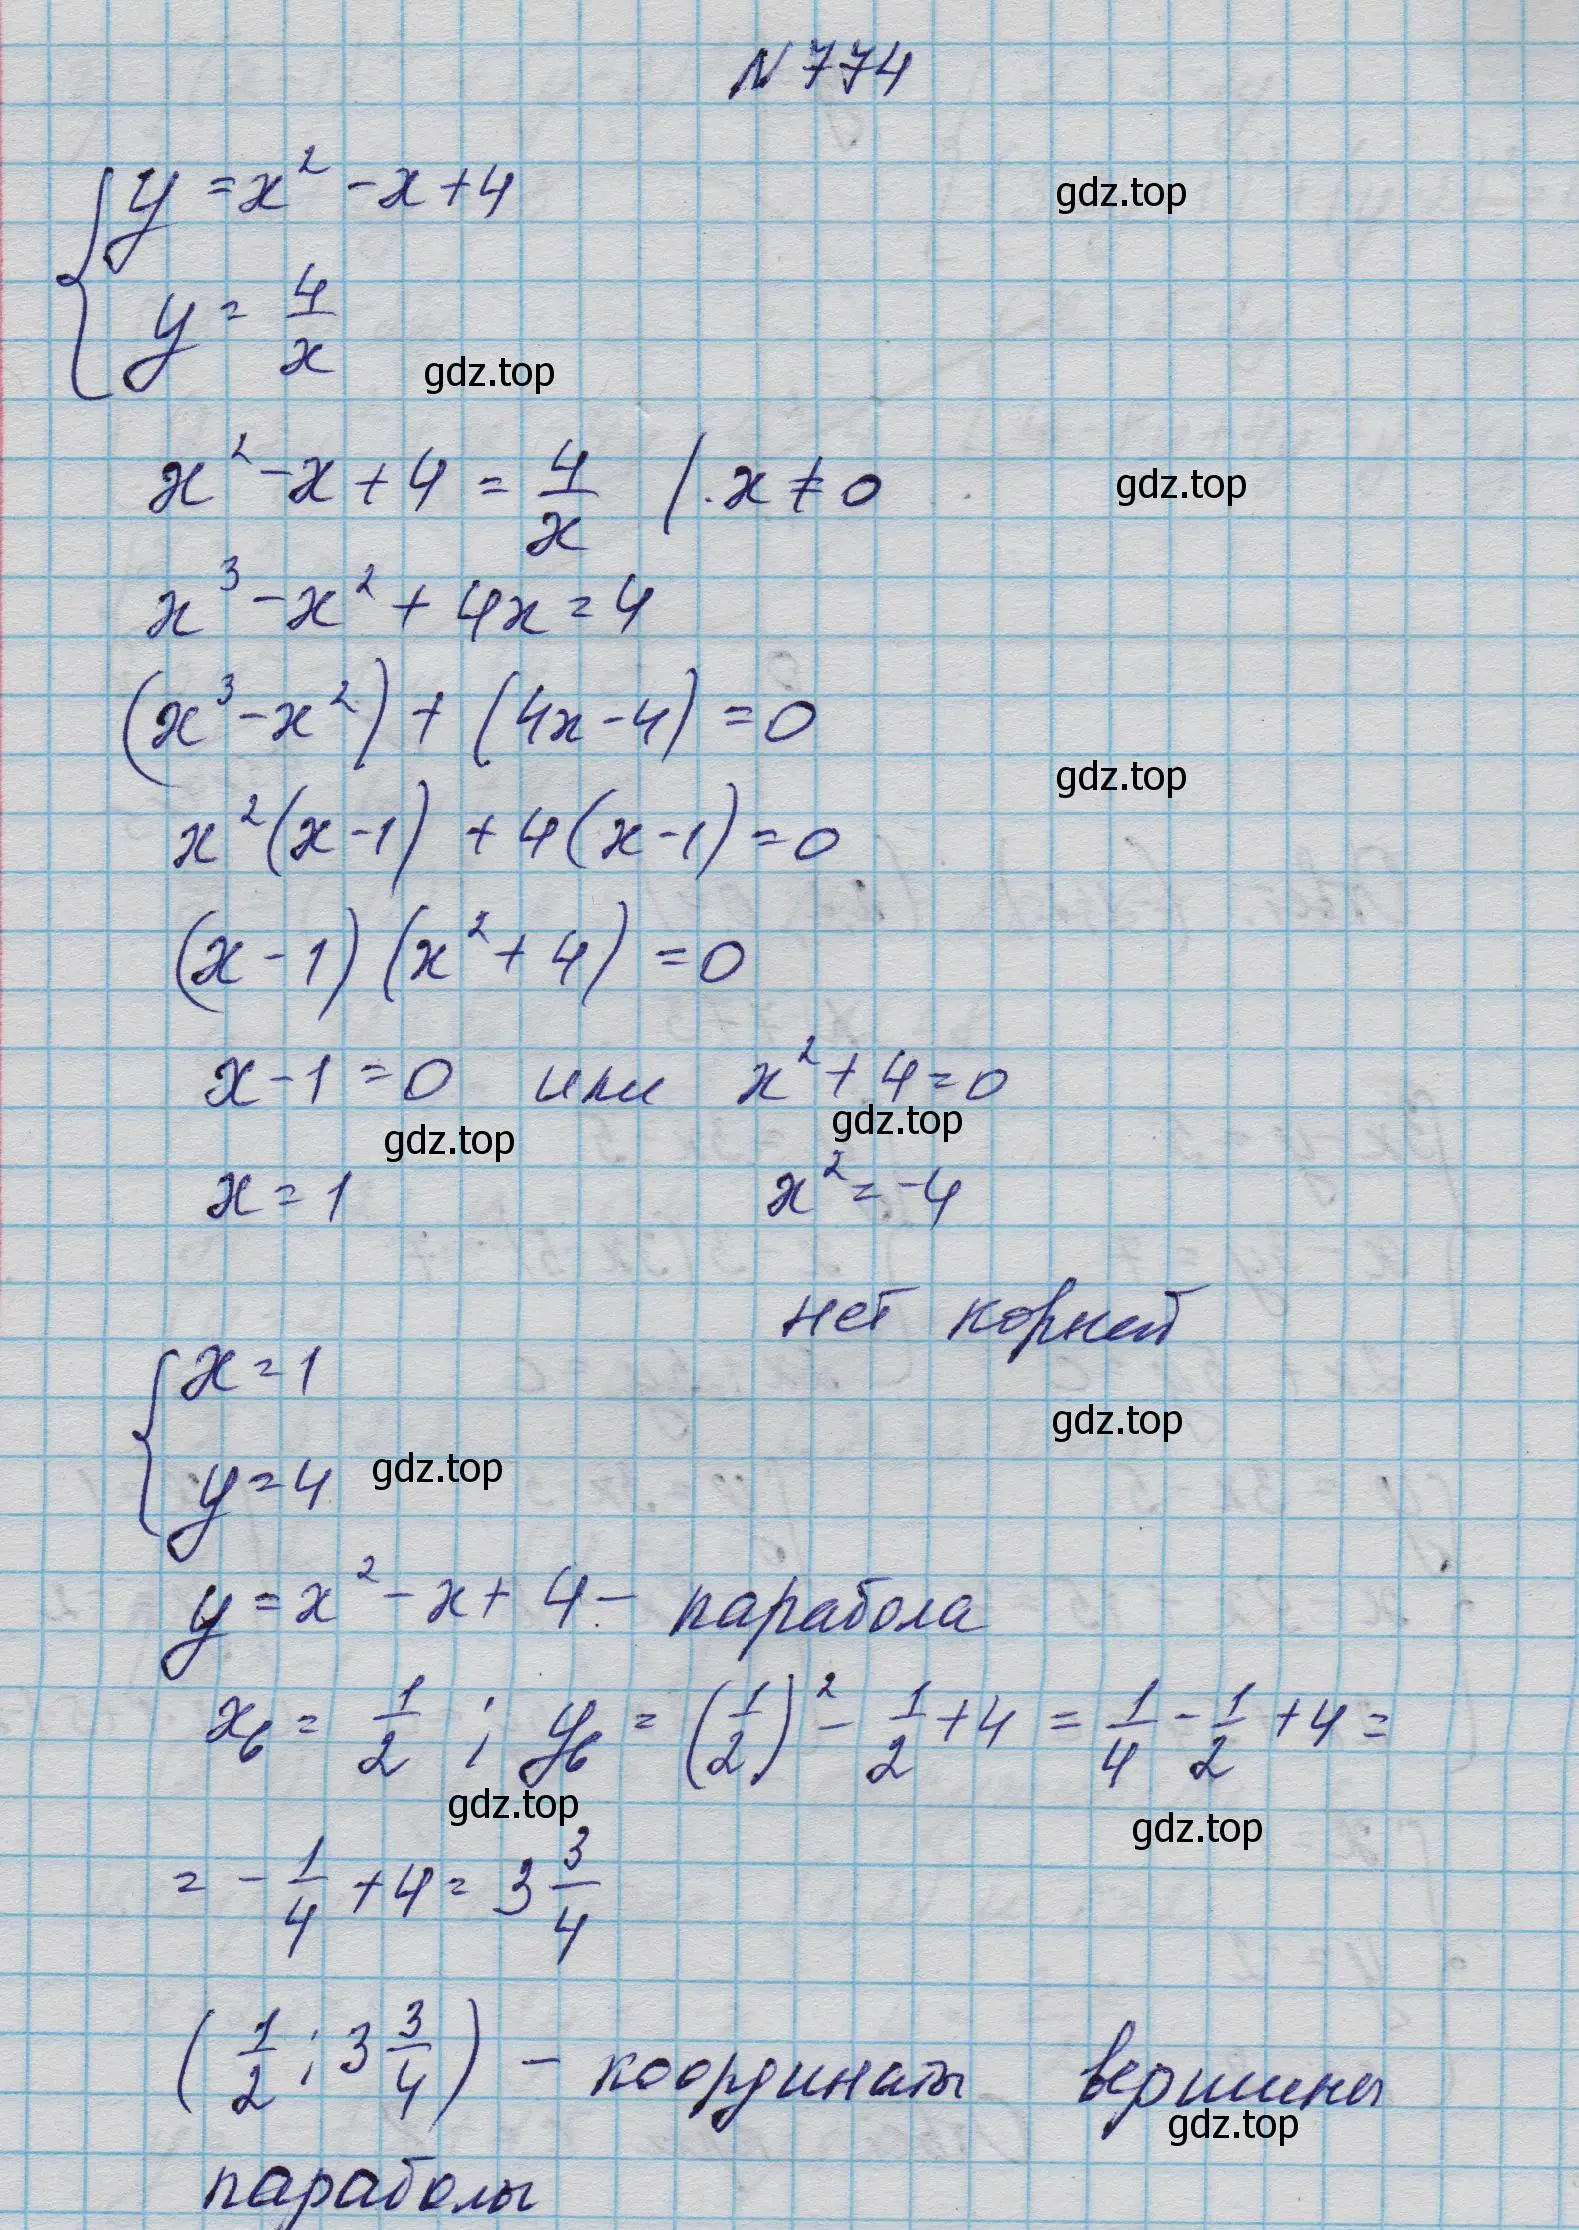 N 774
{ y = x² - x + 4
gdz.top
y = 4/x
gdz.top
x² - x + 4 = 4/x | · x ≠ 0
gdz.top
x³ - x² + 4x = 4
(x³ - x²) + (4x - 4) = 0
gdz.top
x²(x - 1) + 4(x - 1) = 0
(x - 1)(x² + 4) = 0
x - 1 = 0 или x² + 4 = 0
gdz.top gdz.top
x = 1 x² = -4
нет корней
{ x = 1
gdz.top
y = 4
gdz.top
y = x² - x + 4 - парабола
xв = 1/2 ; yв = (1/2)² - 1/2 + 4 = 1/4 - 1/2 + 4 =
gdz.top gdz.top
= - 1/4 + 4 = 3 3/4
(1/2 ; 3 3/4) - координаты вершины
gdz.top
параболы